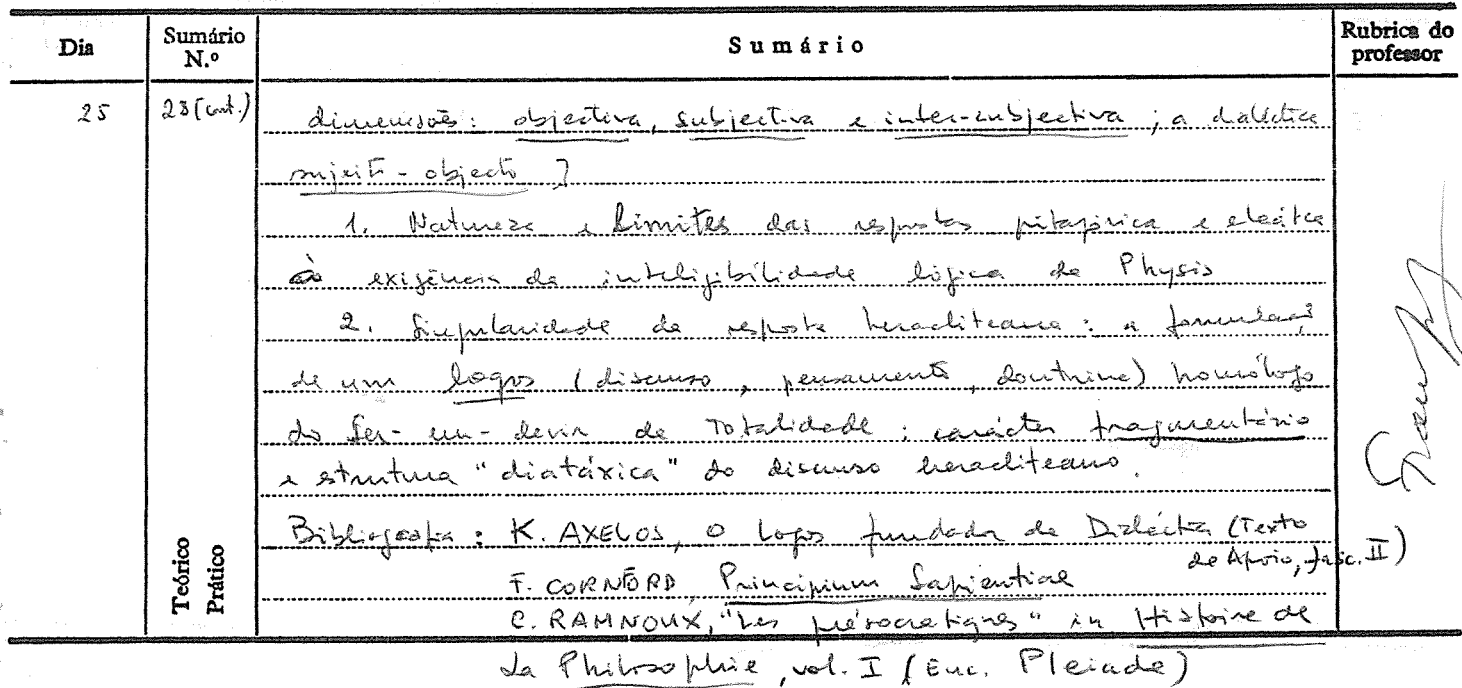 Dia Sumário N.º Sumário Rubrica do professor
25 23 (cont.) dimensões: objectiva, subjectiva e inter-subjectiva; a dialéctica
sujeito-objecto]
1. Natureza e limites das respostas pitagórica e eleática
à exigência da inteligibilidade lógica da Physis
2. Singularidade da resposta heracliteana: a formulação
de um logos (discurso, pensamento, doutrina) homólogo
do Ser-em-devir da Totalidade; carácter fragmentário
e estrutura "diatáxica" do discurso heracliteano.
Bibliografia: K. AXELOS, O Logos fundador da Dialéctica (Texto
de Apoio, fasc. II)
F. CORNFORD, Principium Sapientiae
C. RAMNOUX, "Les présocratiques" in Histoire de
la Philosophie, vol. I (Enc. Pleiade)
Teórico
Prático